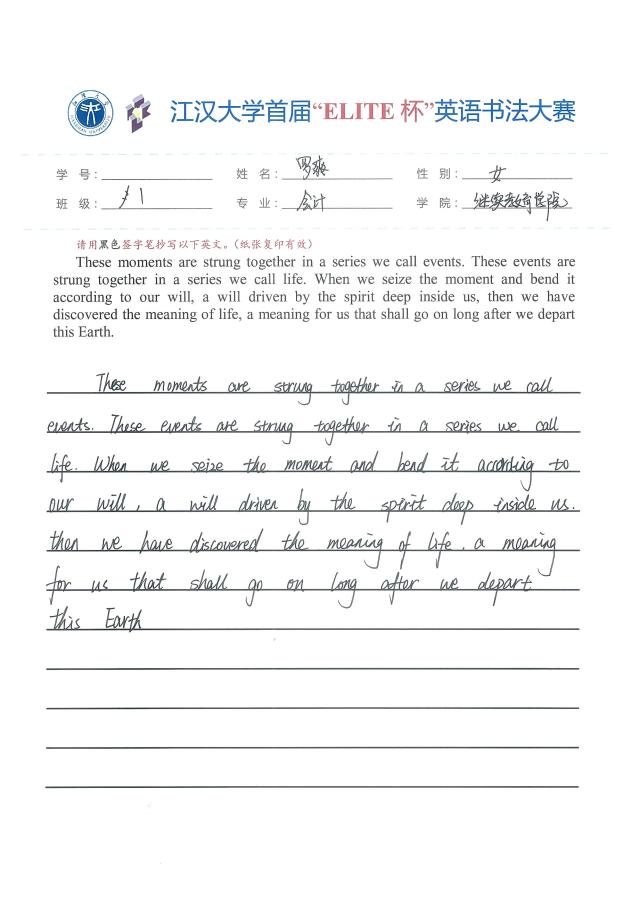 江汉大学首届“ELITE 杯”英语书法大赛
学 号： 姓 名：罗爽 性 别：女
班 级： 专 业：会计 学 院：继续教育学院
请用黑色签字笔抄写以下英文。（纸张复印有效）
These moments are strung together in a series we call events. These events are
strung together in a series we call life. When we seize the moment and bend it
according to our will, a will driven by the spirit deep inside us, then we have
discovered the meaning of life, a meaning for us that shall go on long after we depart
this Earth.
These moments are strung together in a series we call
events. These events are strung together in a series we call
life. When we seize the moment and bend it according to
our will, a will driven by the spirit deep inside us.
then we have discovered the meaning of life. a meaning
for us that shall go on long after we depart
this Earth